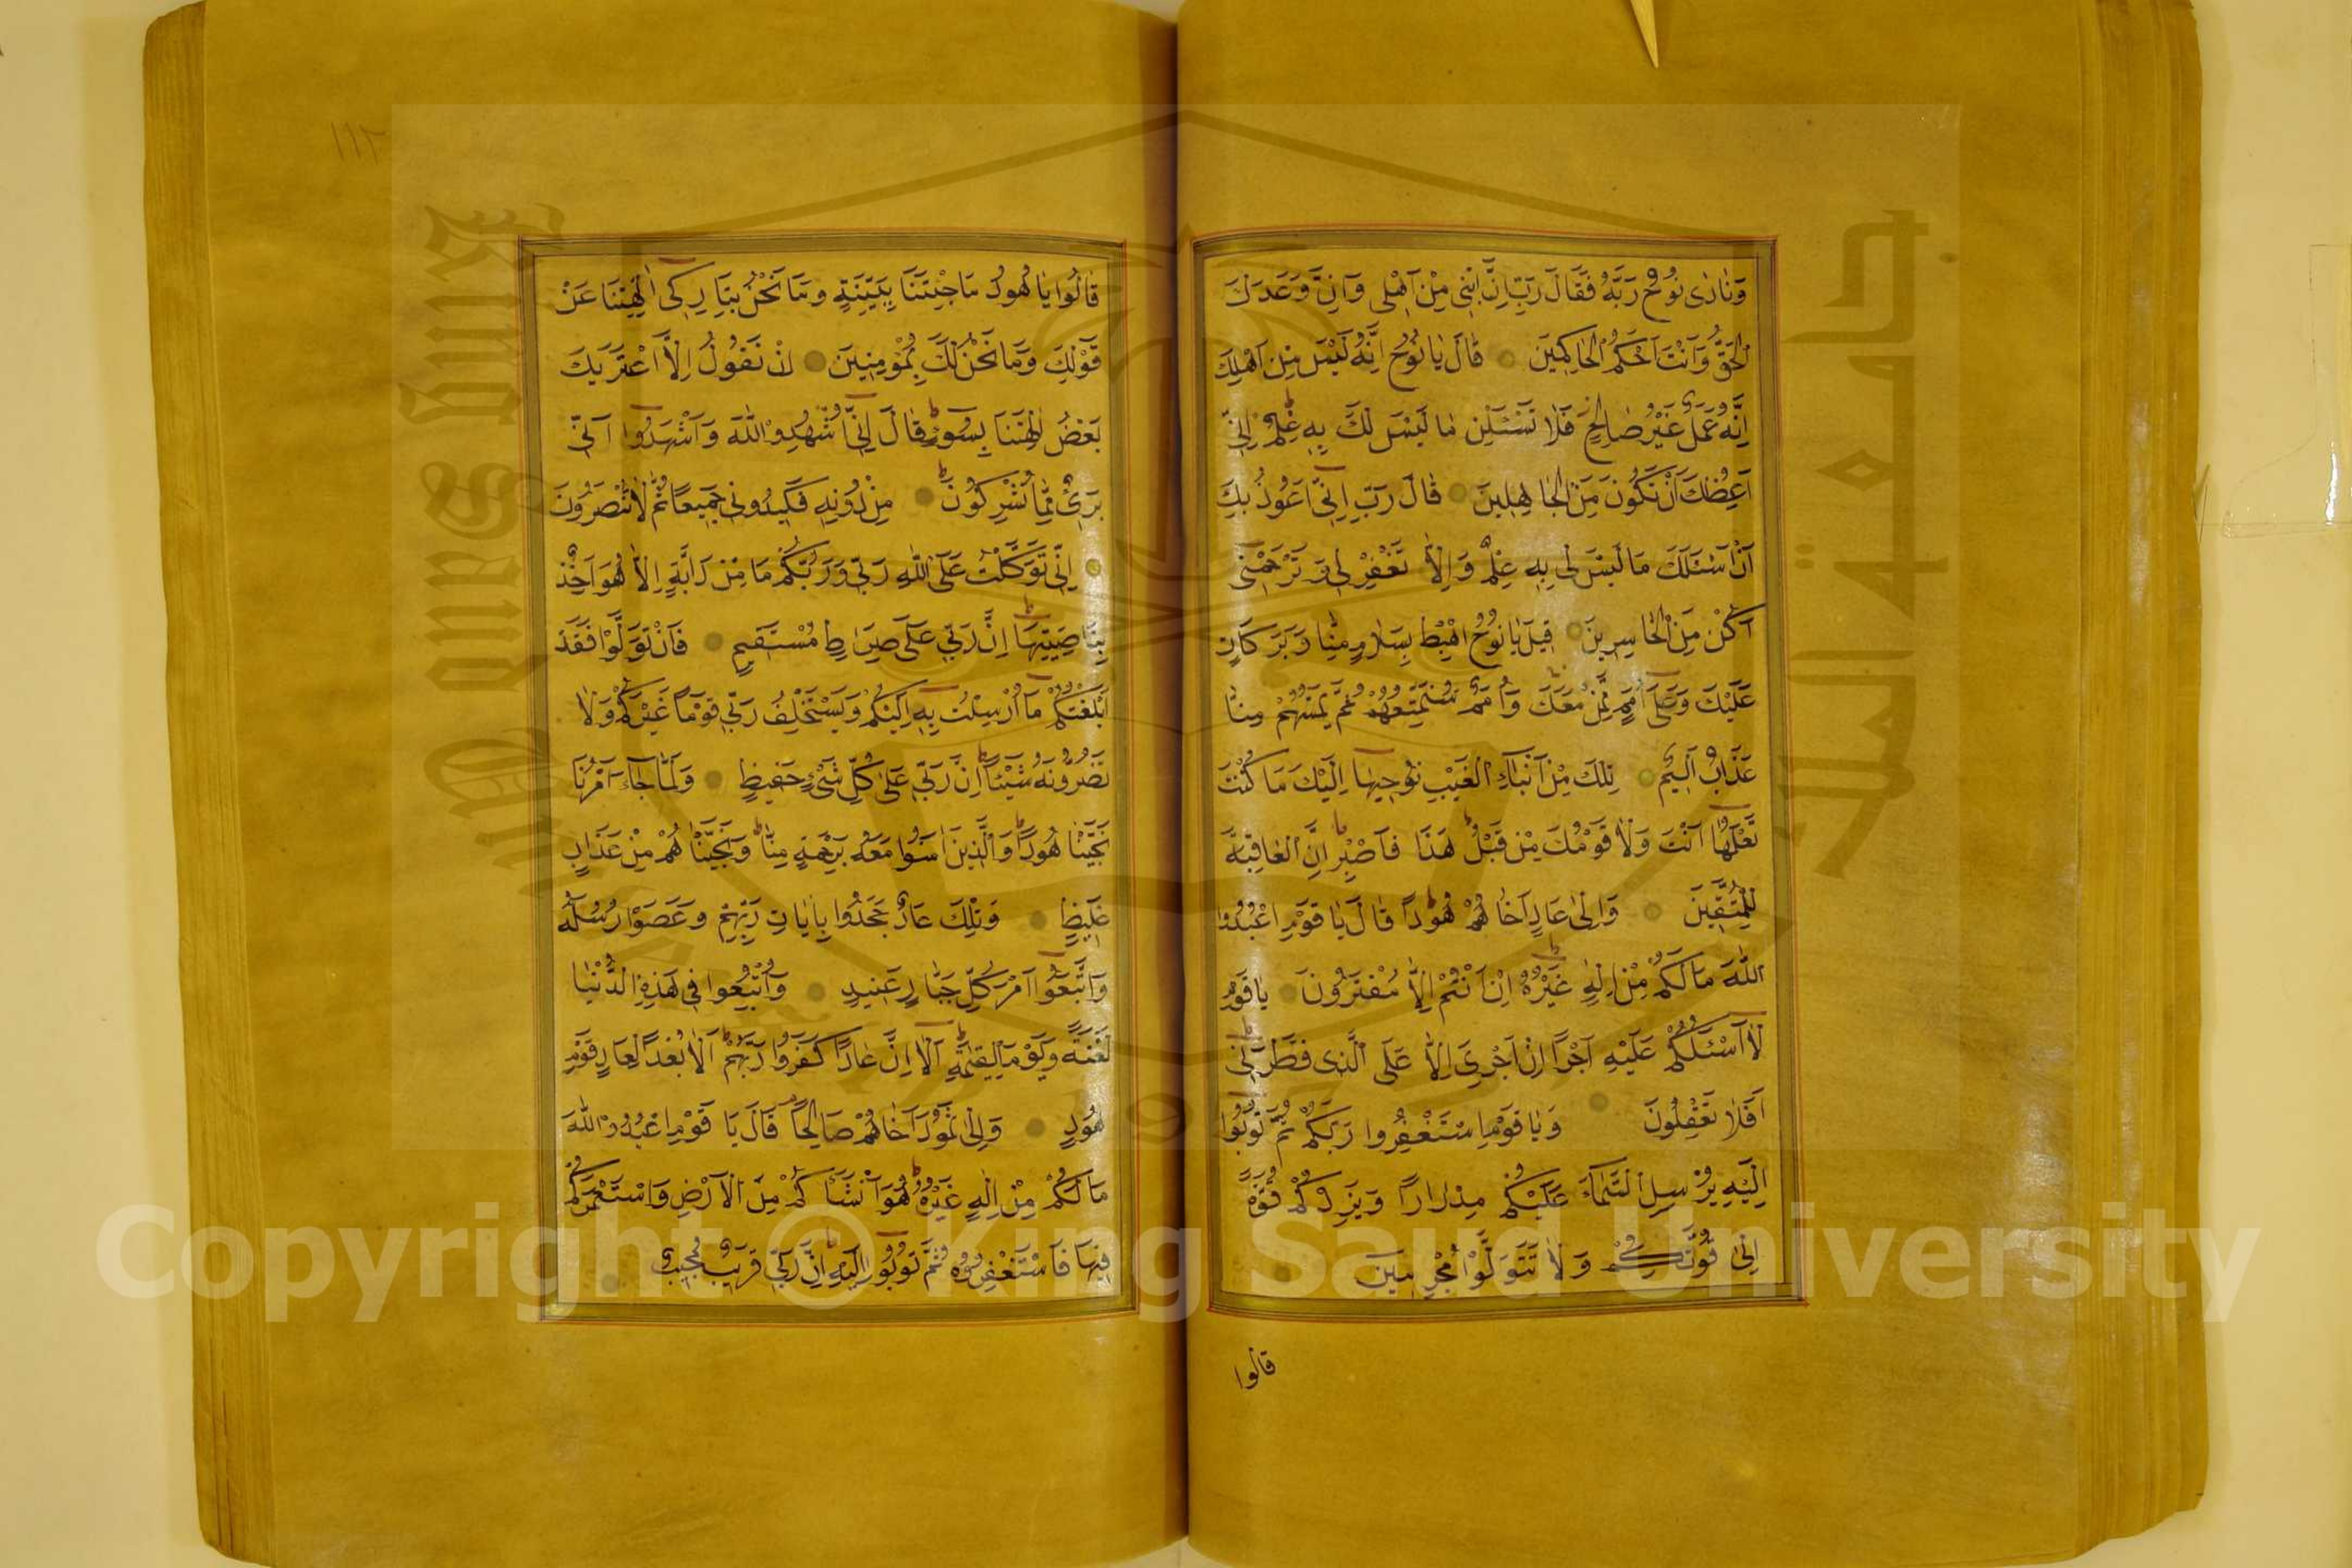 وَنَادٰى نُوحٌ رَبَّهُ فَقَالَ رَبِّ اِنَّ ابْنِى مِنْ اَهْلِى وَاِنَّ وَعْدَكَ
الْحَقُّ وَاَنْتَ اَحْكَمُ الْحَاكِمِينَ قَالَ يَا نُوحُ اِنَّهُ لَيْسَ مِنْ اَهْلِكَ
اِنَّهُ عَمَلٌ غَيْرُ صَالِحٍ فَلَا تَسْئَلْنِ مَا لَيْسَ لَكَ بِهِ عِلْمٌ اِنِّى
اَعِظُكَ اَنْ تَكُونَ مِنَ الْجَاهِلِينَ قَالَ رَبِّ اِنِّى اَعُوذُ بِكَ
اَنْ اَسْئَلَكَ مَا لَيْسَ لِى بِهِ عِلْمٌ وَاِلَّا تَغْفِرْ لِى وَتَرْحَمْنِى
اَكُنْ مِنَ الْخَاسِرِينَ قِيلَ يَا نُوحُ اهْبِطْ بِسَلَامٍ مِنَّا وَبَرَكَاتٍ
عَلَيْكَ وَعَلَى اُمَمٍ مِمَّنْ مَعَكَ وَاُمَمٌ سَنُمَتِّعُهُمْ ثُمَّ يَمَسُّهُمْ مِنَّا
عَذَابٌ اَلِيمٌ تِلْكَ مِنْ اَنْبَاءِ الْغَيْبِ نُوحِيهَا اِلَيْكَ مَا كُنْتَ
تَعْلَمُهَا اَنْتَ وَلَا قَوْمُكَ مِنْ قَبْلِ هَذَا فَاصْبِرْ اِنَّ الْعَاقِبَةَ
لِلْمُتَّقِينَ وَاِلٰى عَادٍ اَخَاهُمْ هُودًا قَالَ يَا قَوْمِ اعْبُدُوا
اللّٰهَ مَا لَكُمْ مِنْ اِلٰهٍ غَيْرُهُ اِنْ اَنْتُمْ اِلَّا مُفْتَرُونَ يَا قَوْمِ
لَا اَسْئَلُكُمْ عَلَيْهِ اَجْرًا اِنْ اَجْرِىَ اِلَّا عَلَى الَّذِى فَطَرَنِى
اَفَلَا تَعْقِلُونَ وَيَا قَوْمِ اسْتَغْفِرُوا رَبَّكُمْ ثُمَّ تُوبُوا
اِلَيْهِ يُرْسِلِ السَّمَاءَ عَلَيْكُمْ مِدْرَارًا وَيَزِدْكُمْ قُوَّةً
اِلٰى قُوَّتِكُمْ وَلَا تَتَوَلَّوْا مُجْرِمِينَ
قالوا
١١٢
قَالُوا يَا هُودُ مَا جِئْتَنَا بِبَيِّنَةٍ وَمَا نَحْنُ بِتَارِكِى اٰلِهَتِنَا عَنْ
قَوْلِكَ وَمَا نَحْنُ لَكَ بِمُؤْمِنِينَ اِنْ نَقُولُ اِلَّا اعْتَرٰيكَ
بَعْضُ اٰلِهَتِنَا بِسُوءٍ قَالَ اِنِّى اُشْهِدُ اللّٰهَ وَاشْهَدُوا اَنِّى
بَرِىءٌ مِمَّا تُشْرِكُونَ مِنْ دُونِهِ فَكِيدُونِى جَمِيعًا ثُمَّ لَا تُنْظِرُونَ
اِنِّى تَوَكَّلْتُ عَلَى اللّٰهِ رَبِّى وَرَبِّكُمْ مَا مِنْ دَابَّةٍ اِلَّا هُوَ اٰخِذٌ
بِنَاصِيَتِهَا اِنَّ رَبِّى عَلَى صِرَاطٍ مُسْتَقِيمٍ فَاِنْ تَوَلَّوْا فَقَدْ
اَبْلَغْتُكُمْ مَا اُرْسِلْتُ بِهِ اِلَيْكُمْ وَيَسْتَخْلِفُ رَبِّى قَوْمًا غَيْرَكُمْ وَلَا
تَضُرُّونَهُ شَيْئًا اِنَّ رَبِّى عَلٰى كُلِّ شَىْءٍ حَفِيظٌ وَلَمَّا جَاءَ اَمْرُنَا
نَجَّيْنَا هُودًا وَالَّذِينَ اٰمَنُوا مَعَهُ بِرَحْمَةٍ مِنَّا وَنَجَّيْنَاهُمْ مِنْ عَذَابٍ
غَلِيظٍ وَتِلْكَ عَادٌ جَحَدُوا بِاٰيَاتِ رَبِّهِمْ وَعَصَوْا رُسُلَهُ
وَاتَّبَعُوا اَمْرَ كُلِّ جَبَّارٍ عَنِيدٍ وَاُتْبِعُوا فِى هَذِهِ الدُّنْيَا
لَعْنَةً وَيَوْمَ الْقِيٰمَةِ اَلَا اِنَّ عَادًا كَفَرُوا رَبَّهُمْ اَلَا بُعْدًا لِعَادٍ قَوْمِ
هُودٍ وَاِلٰى ثَمُودَ اَخَاهُمْ صَالِحًا قَالَ يَا قَوْمِ اعْبُدُوا اللّٰهَ
مَا لَكُمْ مِنْ اِلٰهٍ غَيْرُهُ هُوَ اَنْشَاَكُمْ مِنَ الْاَرْضِ وَاسْتَعْمَرَكُمْ
فِيهَا فَاسْتَغْفِرُوهُ ثُمَّ تُوبُوا اِلَيْهِ اِنَّ رَبِّى قَرِيبٌ مُجِيبٌ
جامعة الملك سعود
King Saud University
Copyright © King Saud University